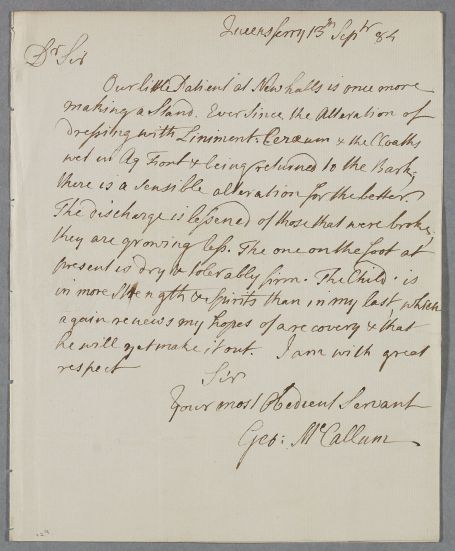 Queensferry 13th Septr 84
Dr Sir
Our little Patient at Newhalls is once more
making a Stand. Ever Since the Alteration of
dressing with Liniment. Ceraum & the Cloaths
wet in Aq Font & being returned to the Bark,
there is a sensible alteration for the better.
The discharge is lessened of those that were broke,
they are growing less. The one on the foot at
present is dry & tolerably firm. The Child is
in more Strength & spirits than in my last, which
again renews my hopes of a recovery & that
he will yet make it out. I am with great
respect
Sir
Your most Obedient Servant
Geo: McCallum